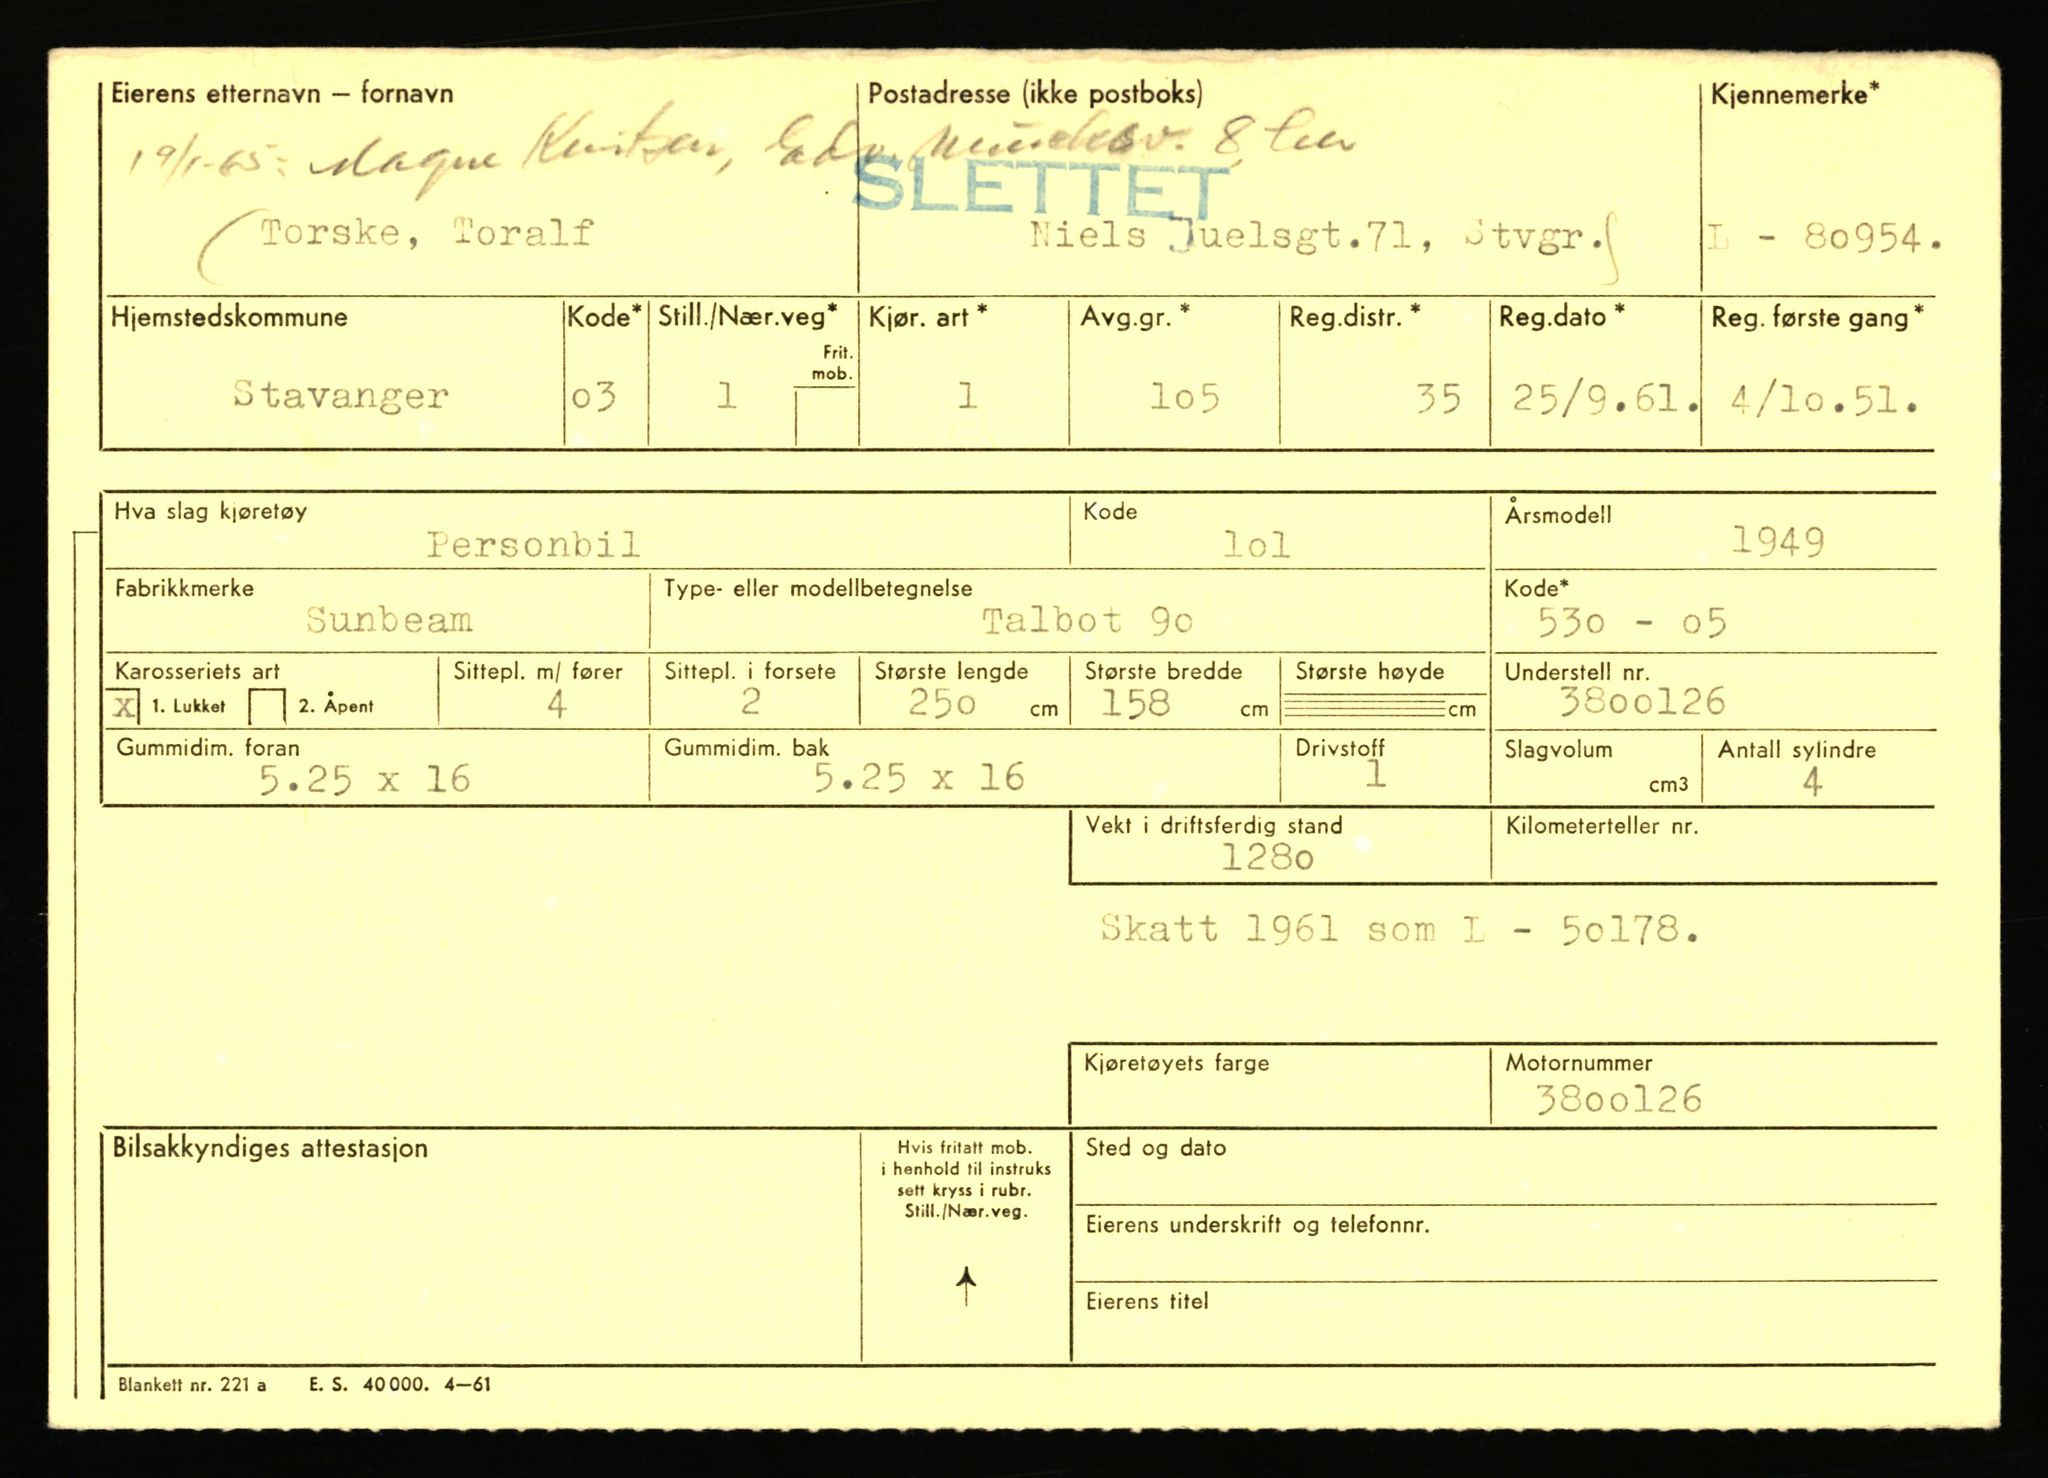 Eierens etternavn – fornavn Postadresse (ikke postboks) Kjennemerke*
19/1-65: Magne Knutsen, Edv. Munchsv. 8, her
SLETTET
(Torske, Toralf Niels Juelsgt.71, Stvgr.) L - 80954.
Hjemstedskommune Kode* Still./Nær.veg* Kjør. art * Avg.gr. * Reg.distr. * Reg.dato * Reg. første gang*
Frit.
mob.
Stavanger o3 1 1 1o5 35 25/9.61. 4/1o.51.
Hva slag kjøretøy Kode Årsmodell
Personbil 1o1 1949
Fabrikkmerke Type- eller modellbetegnelse Kode*
Sunbeam Talbot 9o 53o - o5
Karosseriets art Sittepl. m/ fører Sittepl. i forsete Største lengde Største bredde Største høyde Understell nr.
X 1. Lukket 2. Åpent 4 2 25o cm 158 cm cm 38oo126
Gummidim. foran Gummidim. bak Drivstoff Slagvolum Antall sylindre
5.25 x 16 5.25 x 16 1 cm3 4
Vekt i driftsferdig stand Kilometerteller nr.
128o
Skatt 1961 som L - 5o178.
Kjøretøyets farge Motornummer
38oo126
Bilsakkyndiges attestasjon Hvis fritatt mob. Sted og dato
i henhold til instruks
sett kryss i rubr.
Still./Nær.veg.
Eierens underskrift og telefonnr.
Eierens titel
Blankett nr. 221 a E. S. 40 000. 4–61